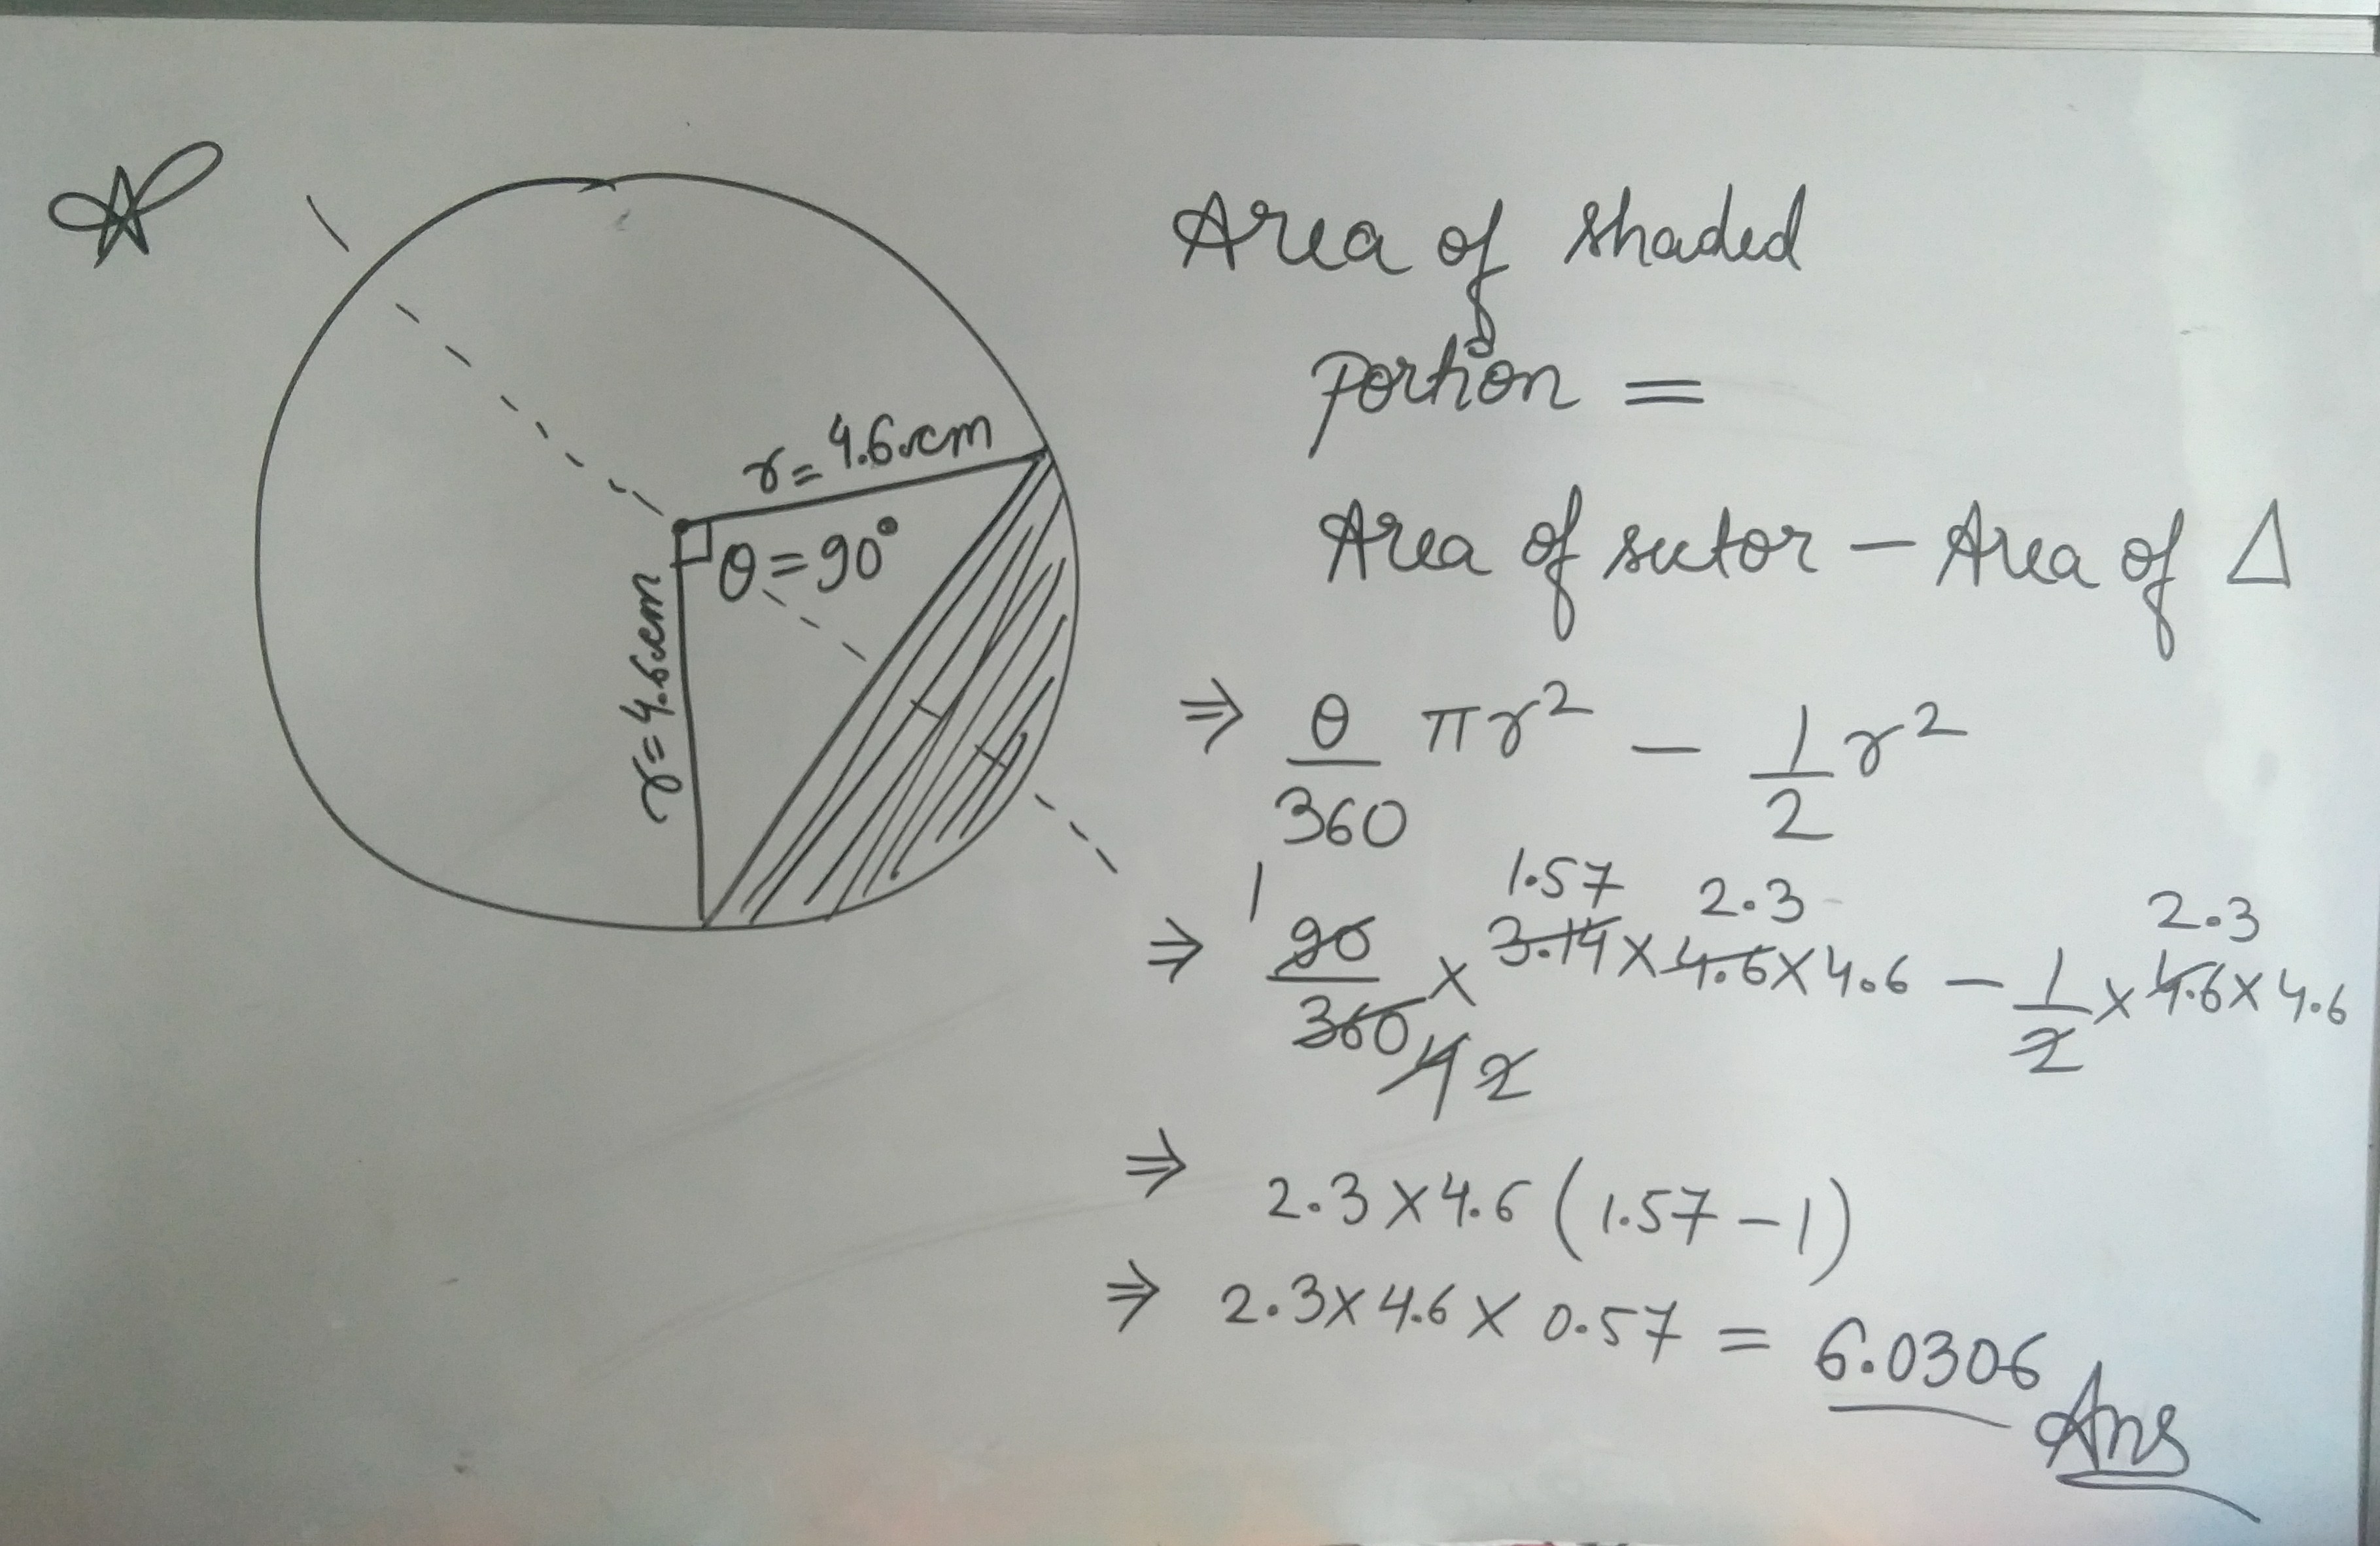 r = 4.6 cm
θ = 90°
r = 4.6 cm
Area of shaded
portion =
Area of sector – Area of Δ
⇒ θ/360 πr² – 1/2 r²
1 1.57 2.3 2.3
⇒ 90/360 × 3.14 × 4.6 × 4.6 – 1/2 × 4.6 × 4.6
4 2
⇒ 2.3 × 4.6 (1.57 – 1)
⇒ 2.3 × 4.6 × 0.57 = 6.0306
Ans